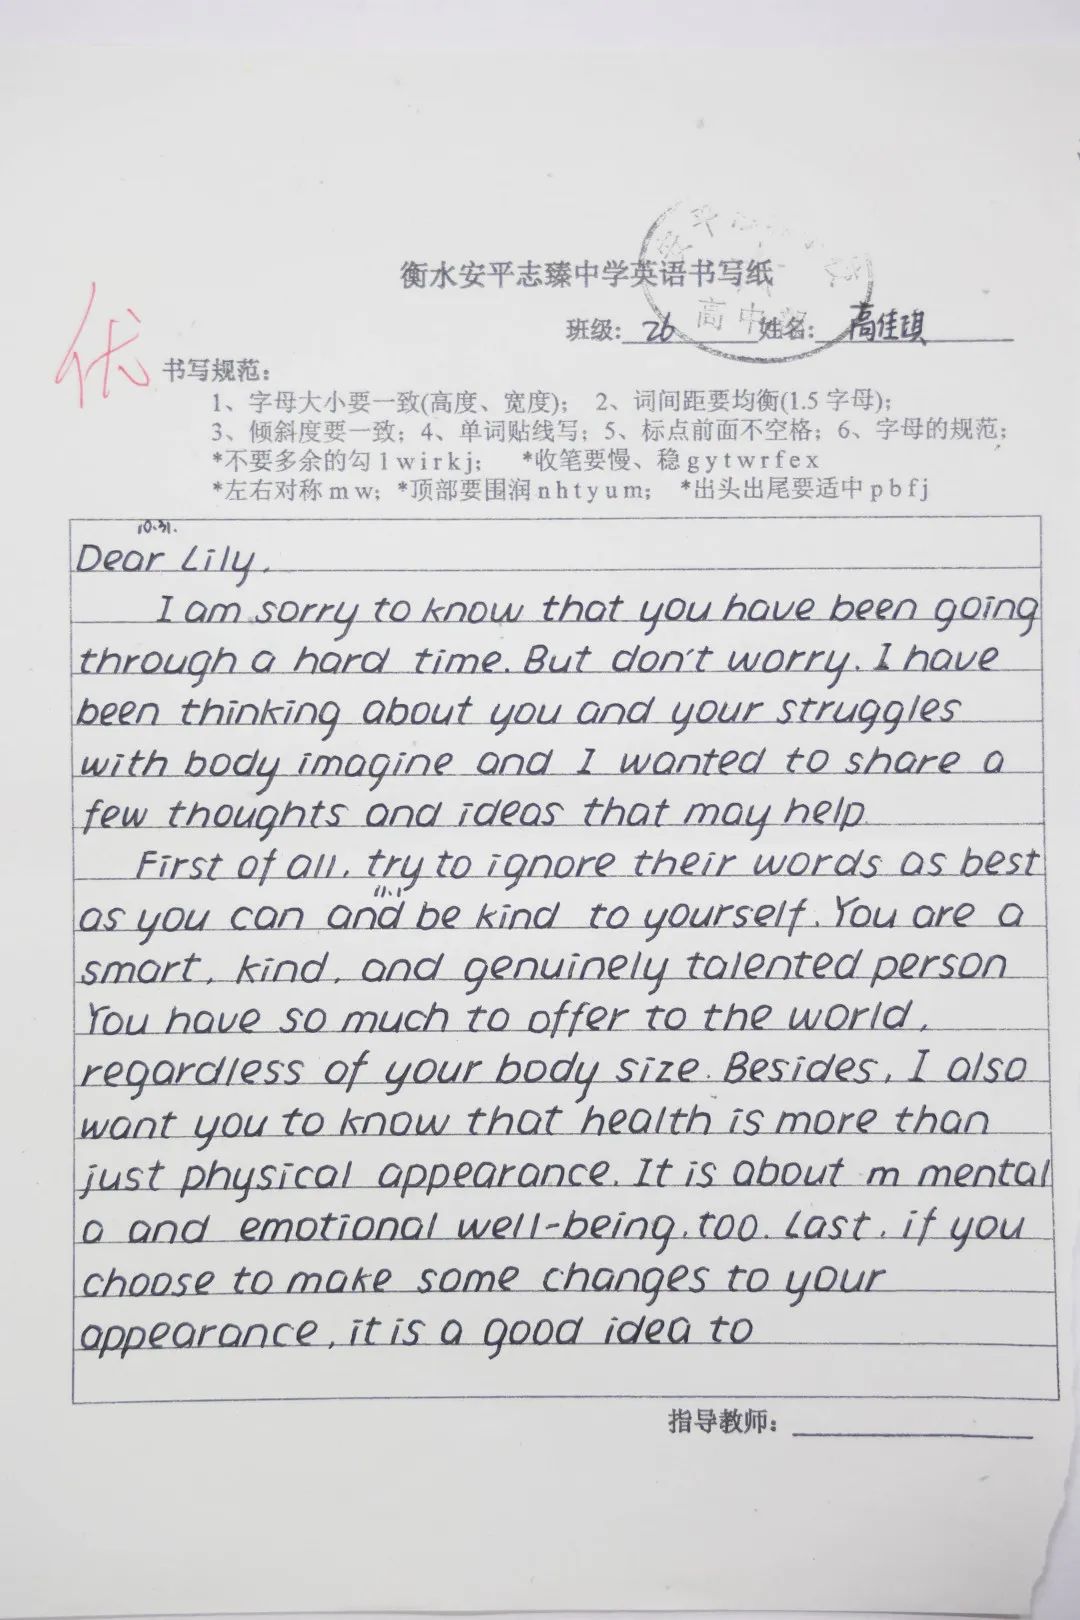 衡水安平志臻中学英语书写纸
高中部
班级: 26 姓名: 高佳琪
优
书写规范:
1、字母大小要一致(高度、宽度); 2、词间距要均衡(1.5 字母);
3、倾斜度要一致; 4、单词贴线写; 5、标点前面不空格; 6、字母的规范;
*不要多余的勾 l w i r k j; *收笔要慢、稳 g y t w r f e x
*左右对称 m w; *顶部要围润 n h t y u m; *出头出尾要适中 p b f j
10.31.
Dear Lily,
I am sorry to know that you have been going
through a hard time. But don't worry. I have
been thinking about you and your struggles
with body imagine and I wanted to share a
few thoughts and ideas that may help.
First of all, try to ignore their words as best
11.1
as you can and be kind to yourself. You are a
smart, kind, and genuinely talented person
You have so much to offer to the world,
regardless of your body size. Besides, I also
want you to know that health is more than
just physical appearance. It is about m mental
a and emotional well-being, too. Last, if you
choose to make some changes to your
appearance, it is a good idea to
指导教师: